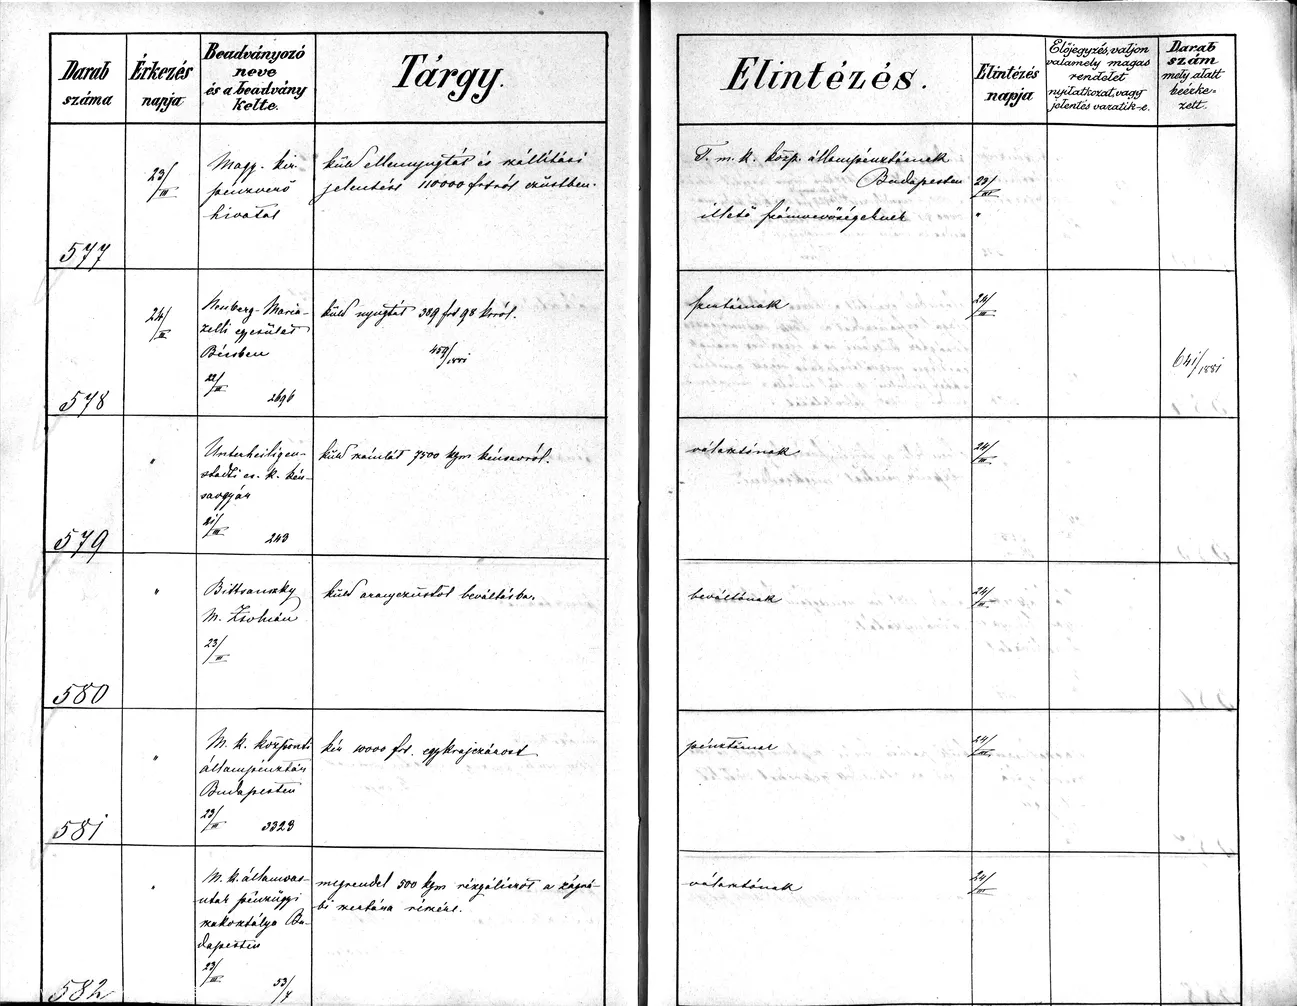 Darab száma
Érkezés napja
Beadványozó neve és a beadvány kelte.
Tárgy.
Elintézés.
Elintézés napja
Előjegyzés, valjon valamely magas rendelet nyilatkozat, vagy jelentésváratik-e.
Darab szám mely alatt beérkezett.
577
23/III
Magy. kir.
pénzverő
hivatal
küld ellennyugtát és szállítási
jelentést 110000 frtról ezüstben.
T. m. k. közp. állampénztárnak
Budapesten
23/III
illető számvevőségeknek
"
578
24/III
Neuberg-Maria-
zelli egyesület
Bécsben
22/III
2696
küld nyugtát 389 frt 98 krról.
459/1881
24/III
641/1881
579
"
Unterheiligen-
stadti cs. k. kén-
savgyár
21/III
243
küld számlát 7500 kgm kénsavról.
választónak
24/III
580
"
Bittsanszky
M. Zsolnán
23/III
küld aranyezüstöt beváltásba.
beváltónak
24/III
581
"
M. k. központi
állampénztár
Budapesten
23/III
3323
kér 10000 frt. egykrajczárost
24/III
582
"
M. k. államvas-
utak pénzügyi
szakosztálya Bu-
dapesten
23/III
53/4
megrendel 500 kgm rézgáliczot a zágrá-
bi részére.
választónak
24/III